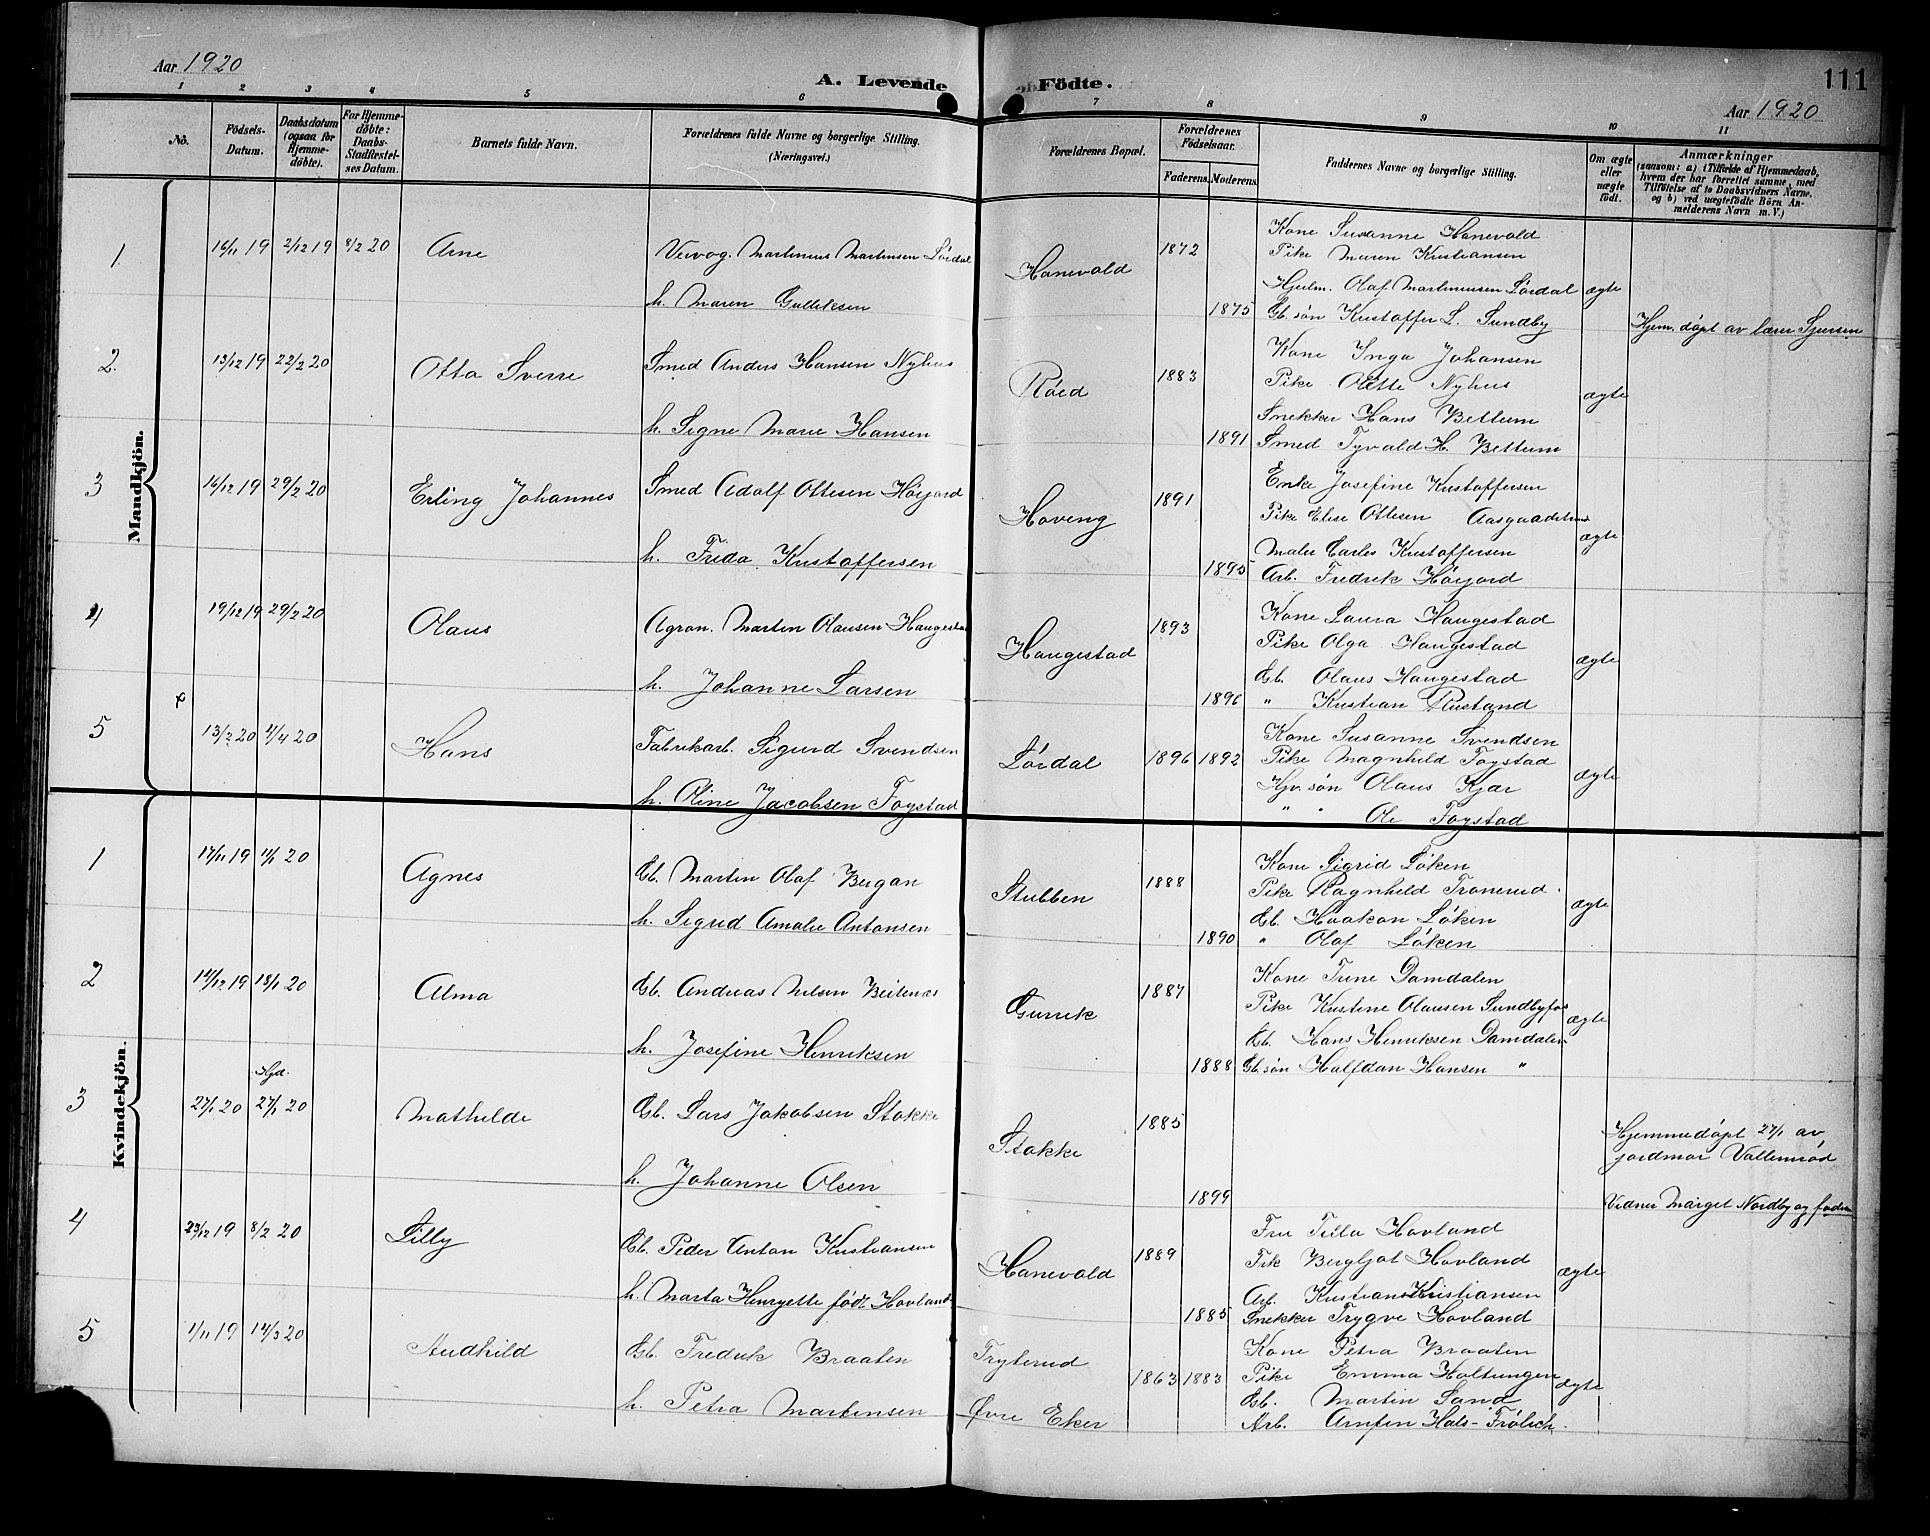 Aar 1920
A. Levende Födte.
111
Aar 1920
1 2 3 4 5 6 7 8 9 10 11
No.
Födsels-Datum.
Daabsdatum (ogsaa for Hjemmedøbte).
For Hjemmedøbte: Daabs-Stadfestelses Datum.
Barnets fulde Navn.
Forældrenes fulde Navne og borgerlige Stilling. (Næringsvei.)
Forældrenes Bopæl.
Forældrenes Födselsaar.
Faderens. Moderens.
Faddernes Navne og borgerlige Stilling.
Om ægte eller uægte født.
Anmærkninger
(saasom: a) i Tilfælde af Hjemmedaab, hvem der har forrettet samme, med Tilföielse af to Daabsvidners Navne. og b) ved uægtefödte Börn Anmelderens Navn m. V.)
Mandkjön.
1 16/11 19 2/12 19 8/2 20 Arne
Veivog. Martinius Martinsen Lørdal
h. Maren Gulliksen
Hanevold 1872 1875
Kone Susanne Hanevold
Pike Maren Kristiansen
Hjulm. Olaf Martinusen Lørdal ægte
Gb. søn Kristoffer L. Sundby
Hjem. døpt av lærer Sjursen
2. 13/12 19 22/2 20 Otto Sverre
Smed Anders Hansen Nyhus
h. Signe Marie Hansen
Røed 1883 1891
Kone Inga Johansen
Pike Olette Nyhus
Snekker Hans Bettum ægte
Smed Tyvald H. Bettum
3 16/12 19 29/2 20 Erling Johannes
Smed Adolf Ottesen Høijord
h. Frida Kristoffersen
Hoveng 1891 1895
Enke Josefine Kristoffersen
Pike Elise Ottesen
Maler Carles Kristoffersen ægte
Arb. Fredrik Høijord
4 19/12 19 29/2 20 Olaus
Agron. Martin Olausen Haugestad
h. Johanne Larsen
Haugestad 1893 1896
Kone Laura Haugestad
Pike Olga Haugestad
Gb. Olaus Haugestad ægte
" Kristian Rustand
5 13/2 20 4/4 20 Hans
Fabrikarb. Sigurd Svendsen
h. Oline Jacobsen Foystad
Lørdal 1896 1892
Kone Susanne Svendsen
Pike Magnhild Foystad
Hjv. søn Olaus Kjær ægte
" " Ole Foystad
Kvindekjön.
1 17/11 19 11/1 20 Agnes
Gb. Martin Olaf Bergan
h. Sigrid Amalie Antonsen
Stubben 1888 1890
Kone Sigrid Løken
Pike Ragnhild Tronerud
Gb. Haakon Løken ægte
" Olaf Løken
2 14/12 19 18/1 20 Alma
Gb. Andreas Nilsen Beitenæs
h. Josefine Henriksen
Gurrik 1887 1888
Kone Trine Damdalen
Pike Kristine Olausen Sundbyfos
Gb. Hans Henriksen Damdalen ægte
Gb. søn Halfdan Hansen "
3 27/1 20 Hjd. 27/1 20 Mathilde
Gb. Lars Jakobsen Stokke
h. Johanne Olsen
Stokke 1885 1899
Hjemmedøpt 27/1 av
jordmor Vallemrød
Vidner Marget Nordby og faderen
4 23/12 19 8/2 20 Lilly
Gb. Peder Anton Kristiansen
h. Marta Henryette født Hovland
Hanevold 1889 1885
Fru Tilla Hovland
Pik Bergljot Hovland
Arb. Kristian Kristiansen ægte
Snekker Trygve Hovland
5 1/11 19 14/3 20 Audhild
Gb. Fredrik Braaten
h. Petra Martinsen
Tryterud
Øvre Eker 1863 1883
Kone Petra Braaten
Pike Emma Holtungen
Gb. Martin Sand ægte
Arb. Arnfin Hals-Frølich